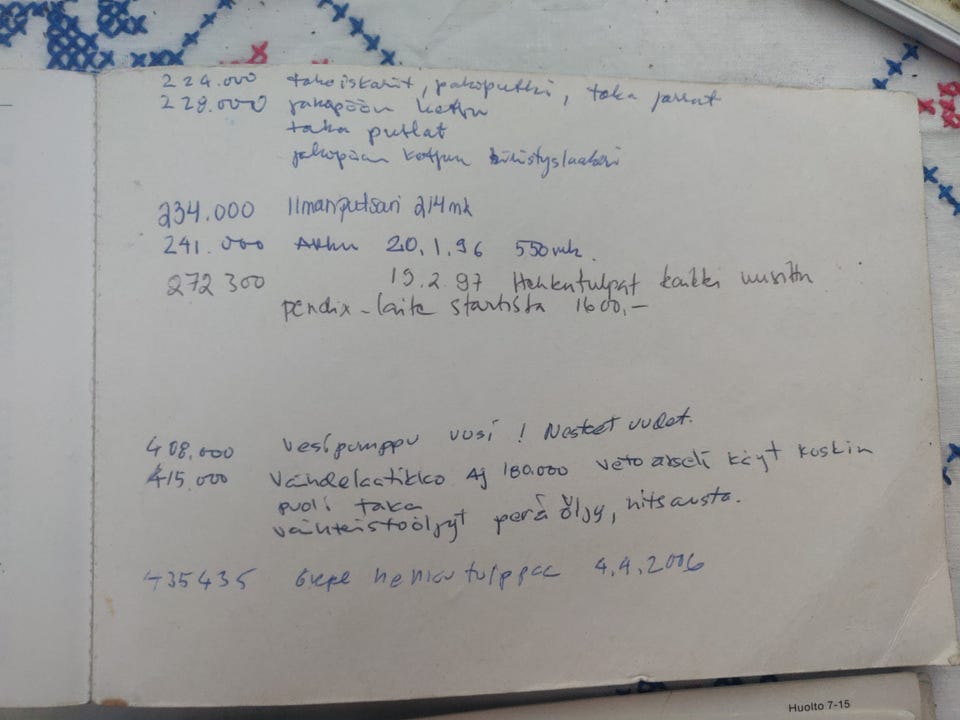 224.000 takaiskarit, pakoputki, taka jarrut
228.000 jakopään ketju
taka puslat
jakopään ketjun kiristyslaakeri
234.000 Ilmanputsari 214mk
241.000 Akku 20.1.96 550mk.
272 300 19.2.97 Hehkutulpat kaikki uusittu
pendix-laite startista 1600,-
408.000 vesipumppu uusi! Nesteet uudet.
415.000 Vaihdelaatikko Aj 180.000 veto akseli käyt
puoli taka
vaihteistoöljyt perä öljy, hitsausta.
435435 hehkutulppaa 4.4.2006
Huolto 7-15